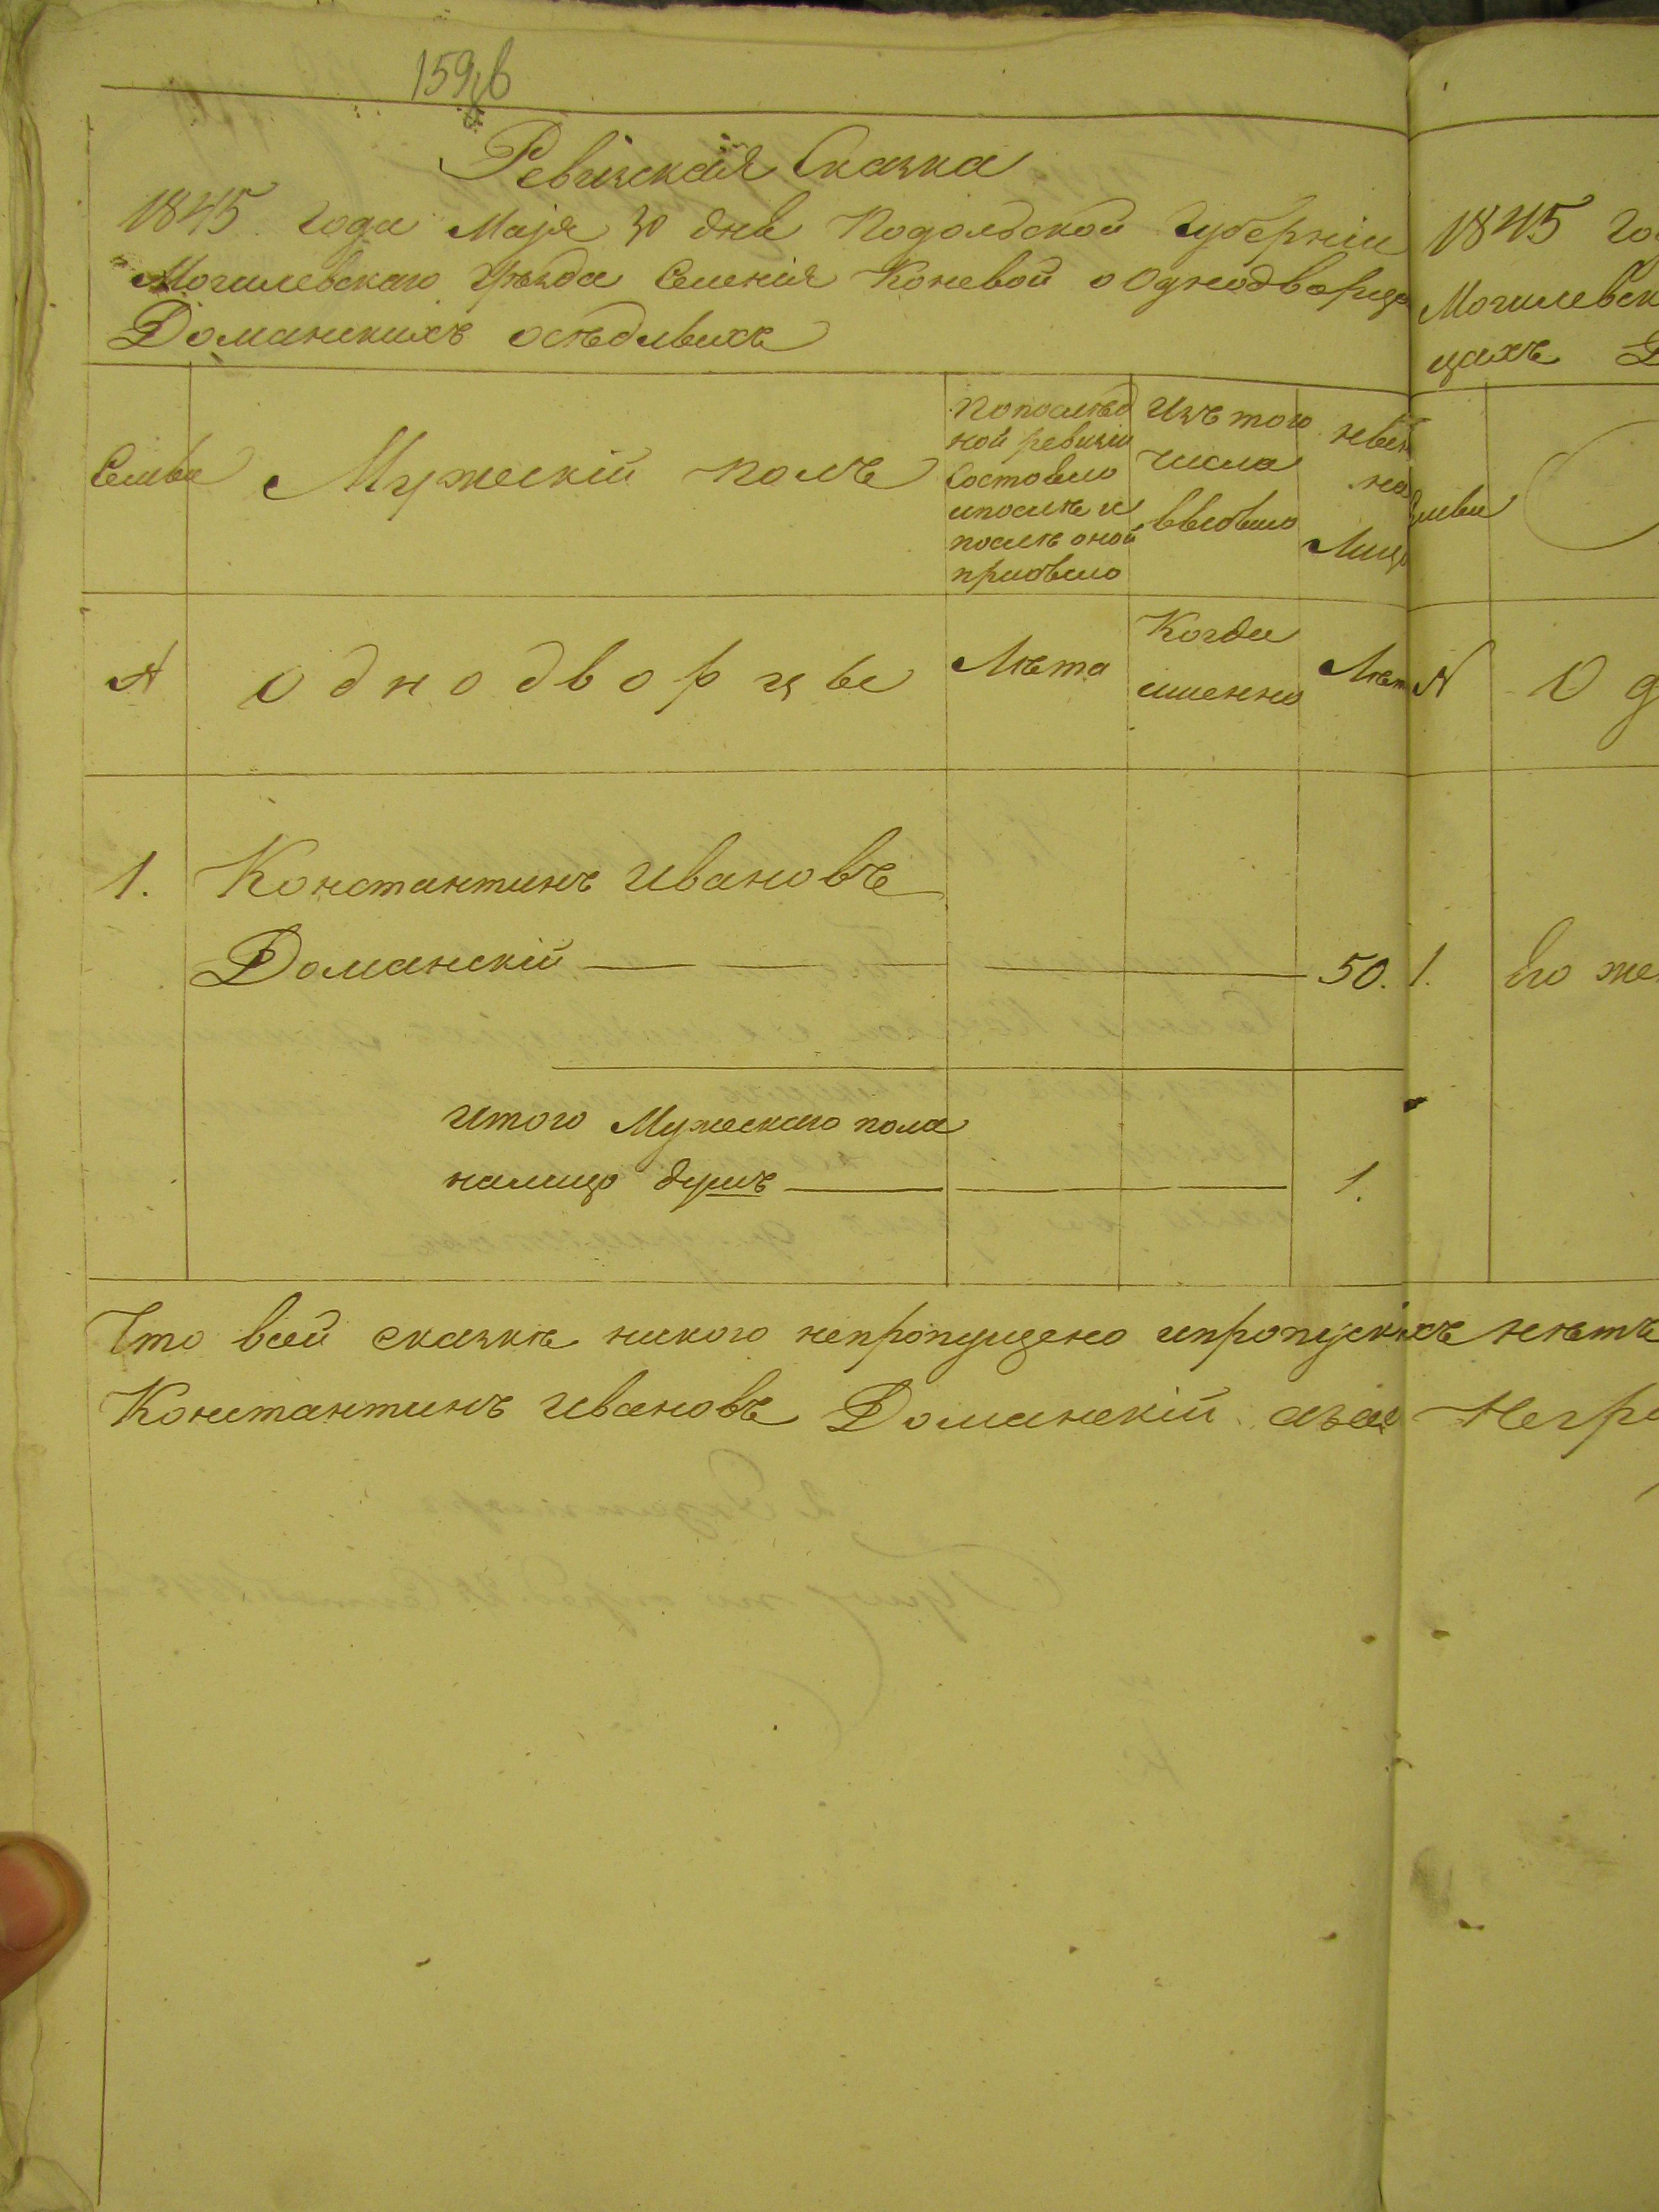 Ревизская Сказка
1845 года Маія 30 дня Подольской Губерніи
Могилевскаго Уѣзда Селенія Коневой о Однодворца
Доманскихъ осѣдлыхъ
Семьи
Мужескій полъ
По послѣд
ной ревизіи
Состояло
и послѣ оной
прибыло
Изъ того
числа
выбыло
на
Лицо
№
Однодворцы
Лѣта
Когда
именно
Лѣт
1.
Константинъ Ивановъ
Доманскій
50.
Итого Мужескаго пола
налицо душъ
1.
Что всей сказкѣ никого непропущено
нѣтъ
Константинъ Ивановъ Доманскій
1845 го
Могилевск
цахъ
№
О д
1.
Его же